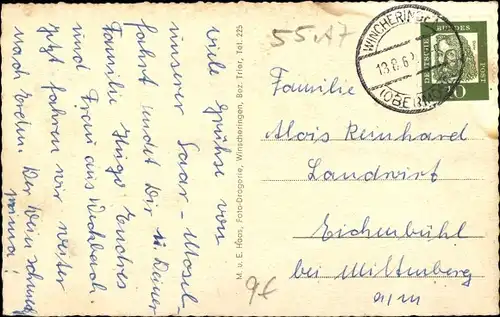 viele Grüße von
unserer Saar-Mosel-
fahrt sendet Dir u. Deiner
Familie Hugo Endres
und Frau aus
jetzt fahren wir weiter
nach Erden. Der Wein schmeckt
prima!
M. u. E. Haas, Foto-Drogerie, Wincheringen, Bez. Trier, Tel: 225
55.A7
9f
WINCHERINGEN
13.8.62
(OBERMOSEL)
DEUTSCHE BUNDESPOST
10
Familie
Alois Reinhard
Landwirt
Eichenbühl
bei Miltenberg
a/m